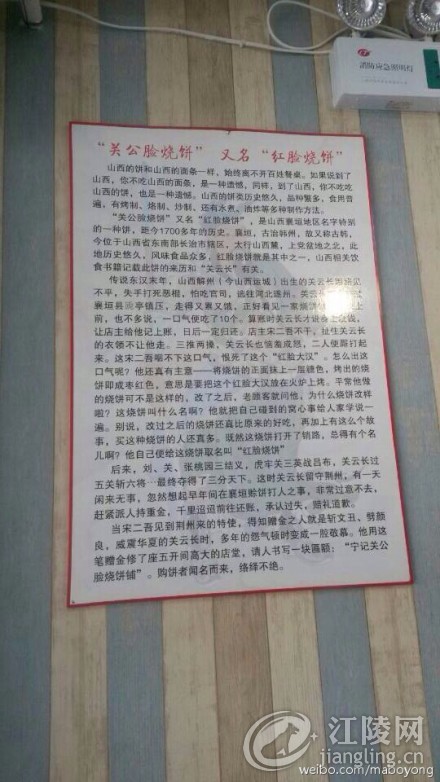 消防应急照明灯
“关公脸烧饼” 又名“红脸烧饼”
山西的饼和山西的面条一样，始终离不开百姓餐桌。如果说到了
山西，你不吃山西的面条，是一种遗憾，同样，到了山西，你不吃吃
山西的饼，也是一种遗憾。山西的饼类历史悠久，品种繁多，食用普
遍，有烤制、烙制、炒制、还有水煮、油炸等多种制作方法。
“关公脸烧饼”又名“红脸烧饼”，是山西襄垣地区名字特别
的一种饼，距今1700多年的历史。襄垣，古治韩州，故又称古韩，
今位于山西省东南部长治市辖区，太行山西麓，上党盆地之北，此
地历史悠久，风味食品众多，红脸烧饼就是其中之一，山西相关饮
食书籍记载此饼的来历和“关云长”有关。
传说东汉末年，山西解州（今山西运城）出生的关云长
不平，失手打死恶棍，怕吃官司，逃往河北涿州。关云长
襄垣县 亭镇压，走得又累又饿，正好看见一家烧饼 上
前，也不多说，一口气便吃了10个。算账时关云长才说身上没钱，
让店主给他记上账，日后一定归还。店主宋二吾不干，扯住关云长
的衣领不让他走。三推两搡，关云长也恼羞成怒，二人便厮打起
来。这宋二吾咽不下这口气，恨死了这个“红脸大汉”。怎么出这
口气呢？他还真有主意——将烧饼的正面抹上一层颜色，烤出的烧
饼即成枣红色，意思是要把这个红脸大汉放在火炉上烤。平常他做
的烧饼可不是这样的，改了之后，老顾客就问他，为什么烧饼改样
啦？这烧饼叫什么名啊？他就把自己碰到的窝心事给人家学说一
遍。别说，改过之后的烧饼还真比原来的好吃，再加上有这么个故
事，买这种烧饼的人还真多。既然这烧饼打开了销路，总得有个名
儿啊？他自己便给这烧饼取名叫“红脸烧饼”
后来，刘、关、张桃园三结义，虎牢关三英战吕布，关云长过
五关斩六将…最终夺得了三分天下。这时关云长留守荆州，有一天
闲来无事，忽然想起早年间在襄垣赊饼打人之事，非常过意不去，
赶紧派人持重金，千里迢迢前往还账，承认过失，赔礼道歉。
当宋二吾见到荆州来的特使，得知赠金之人就是斩文丑、劈颜
良，威震华夏的关云长时，多年的怨气顿时变成一腔敬慕。他用这
笔赠金修了座五开间高大的店堂，请人书写一块匾额：“宁记关公
脸烧饼铺”。购饼者闻名而来，络绎不绝。
江陵网
jiangling.cn
weibo.com/maboyong